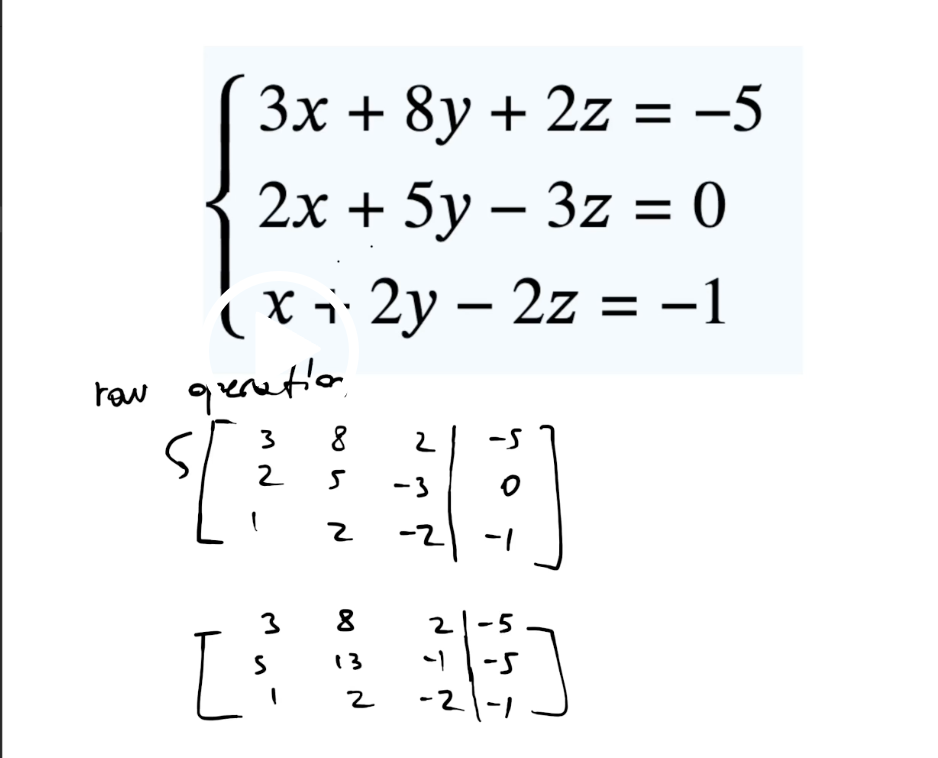 3x + 8y + 2z = −5
2x + 5y − 3z = 0
x + 2y − 2z = −1
row operation
3 8 2 | -5
2 5 -3 | 0
1 2 -2 | -1
3 8 2 | -5
5 13 -1 | -5
1 2 -2 | -1